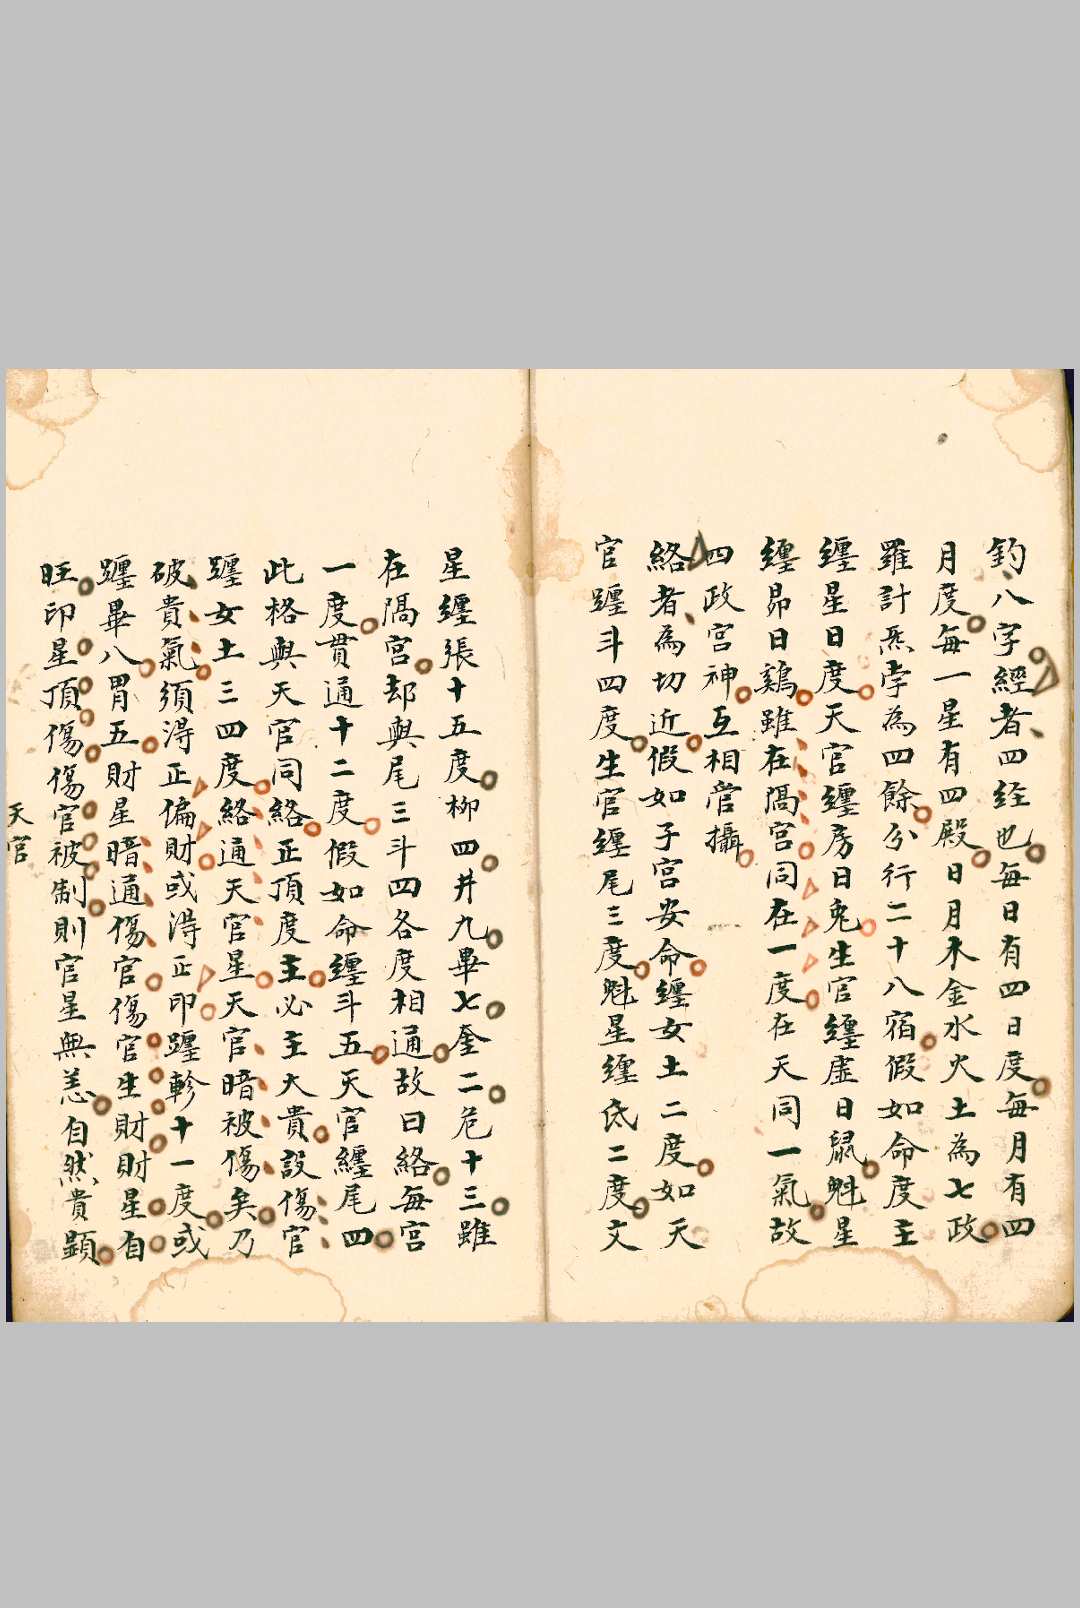 釣八字經者四経也每日有四日度每月有四
月度每一星有四殿日月木金水火土為七政
羅計炁孛為四餘分行二十八宿假如命度主
纏星日度天官纏房日兎生官纏虛日鼠魁星
纏昴日鷄雖在隔宮同在一度在天同一氣故
四政宮神互相管攝
絡者為切近假如子宮安命纏女土二度如天
官躔斗四度生官纏尾三度魁星纏氐二度文
星纏張十五度柳四井九畢七奎二危十三雖
在隔宮却與尾三斗四各度相通故曰絡每宮
一度貫通十二度假如命纏斗五天官纏尾四
此格與天官同絡正頂度主必主大貴設傷官
躔女土三四度絡通天官星天官暗被傷矣乃
破貴氣須淂正偏財或淂正印躔軫十一度或
躔畢八胃五財星暗通傷官傷官生財財星自
旺印星頂傷傷官被制則官星無恙自然貴顯
天官